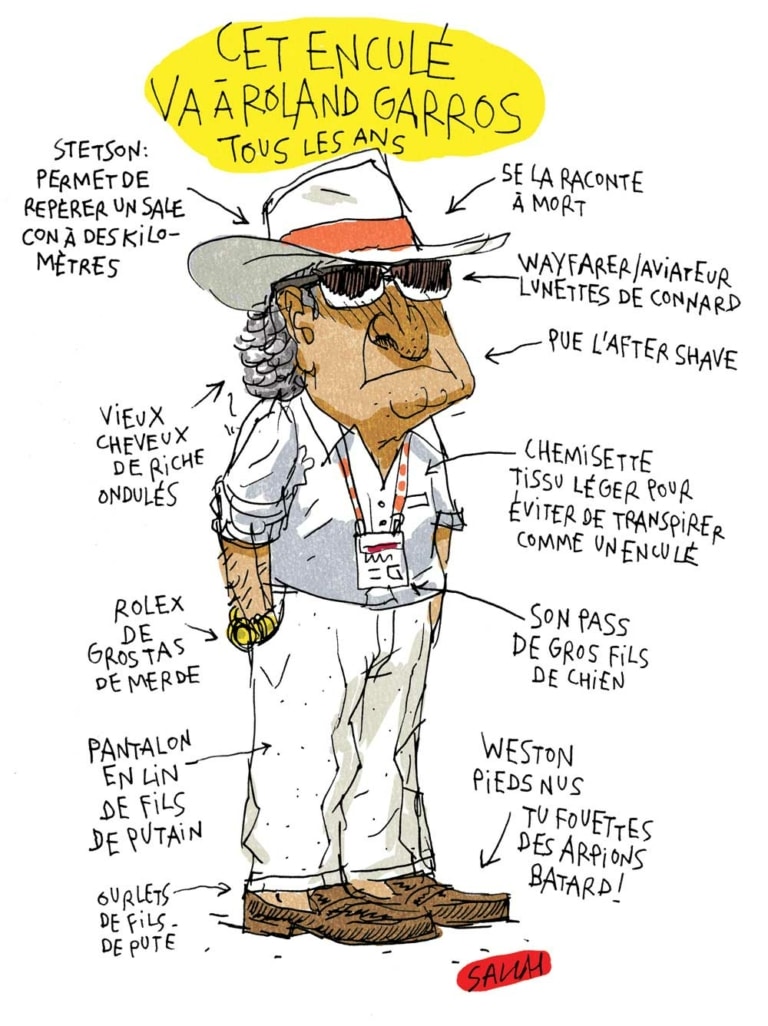 CET ENCULÉ
VA À ROLAND GARROS
TOUS LES ANS
STETSON:
PERMET DE
REPÉRER UN SALE
CON À DES KILO-
MÈTRES
SE LA RACONTE
À MORT
WAYFARER/AVIATEUR
LUNETTES DE CONNARD
PUE L'AFTER SHAVE
VIEUX
CHEVEUX
DE RICHE
ONDULÉS
CHEMISETTE
TISSU LÉGER POUR
ÉVITER DE TRANSPIRER
COMME UN ENCULÉ
ROLEX
DE
GROS TAS
DE MERDE
SON PASS
DE GROS FILS
DE CHIEN
PANTALON
EN LIN
DE FILS
DE PUTAIN
WESTON
PIEDS NUS
TU FOUETTES
DES ARPIONS
BATARD!
OURLETS
DE FILS-
DE PUTE